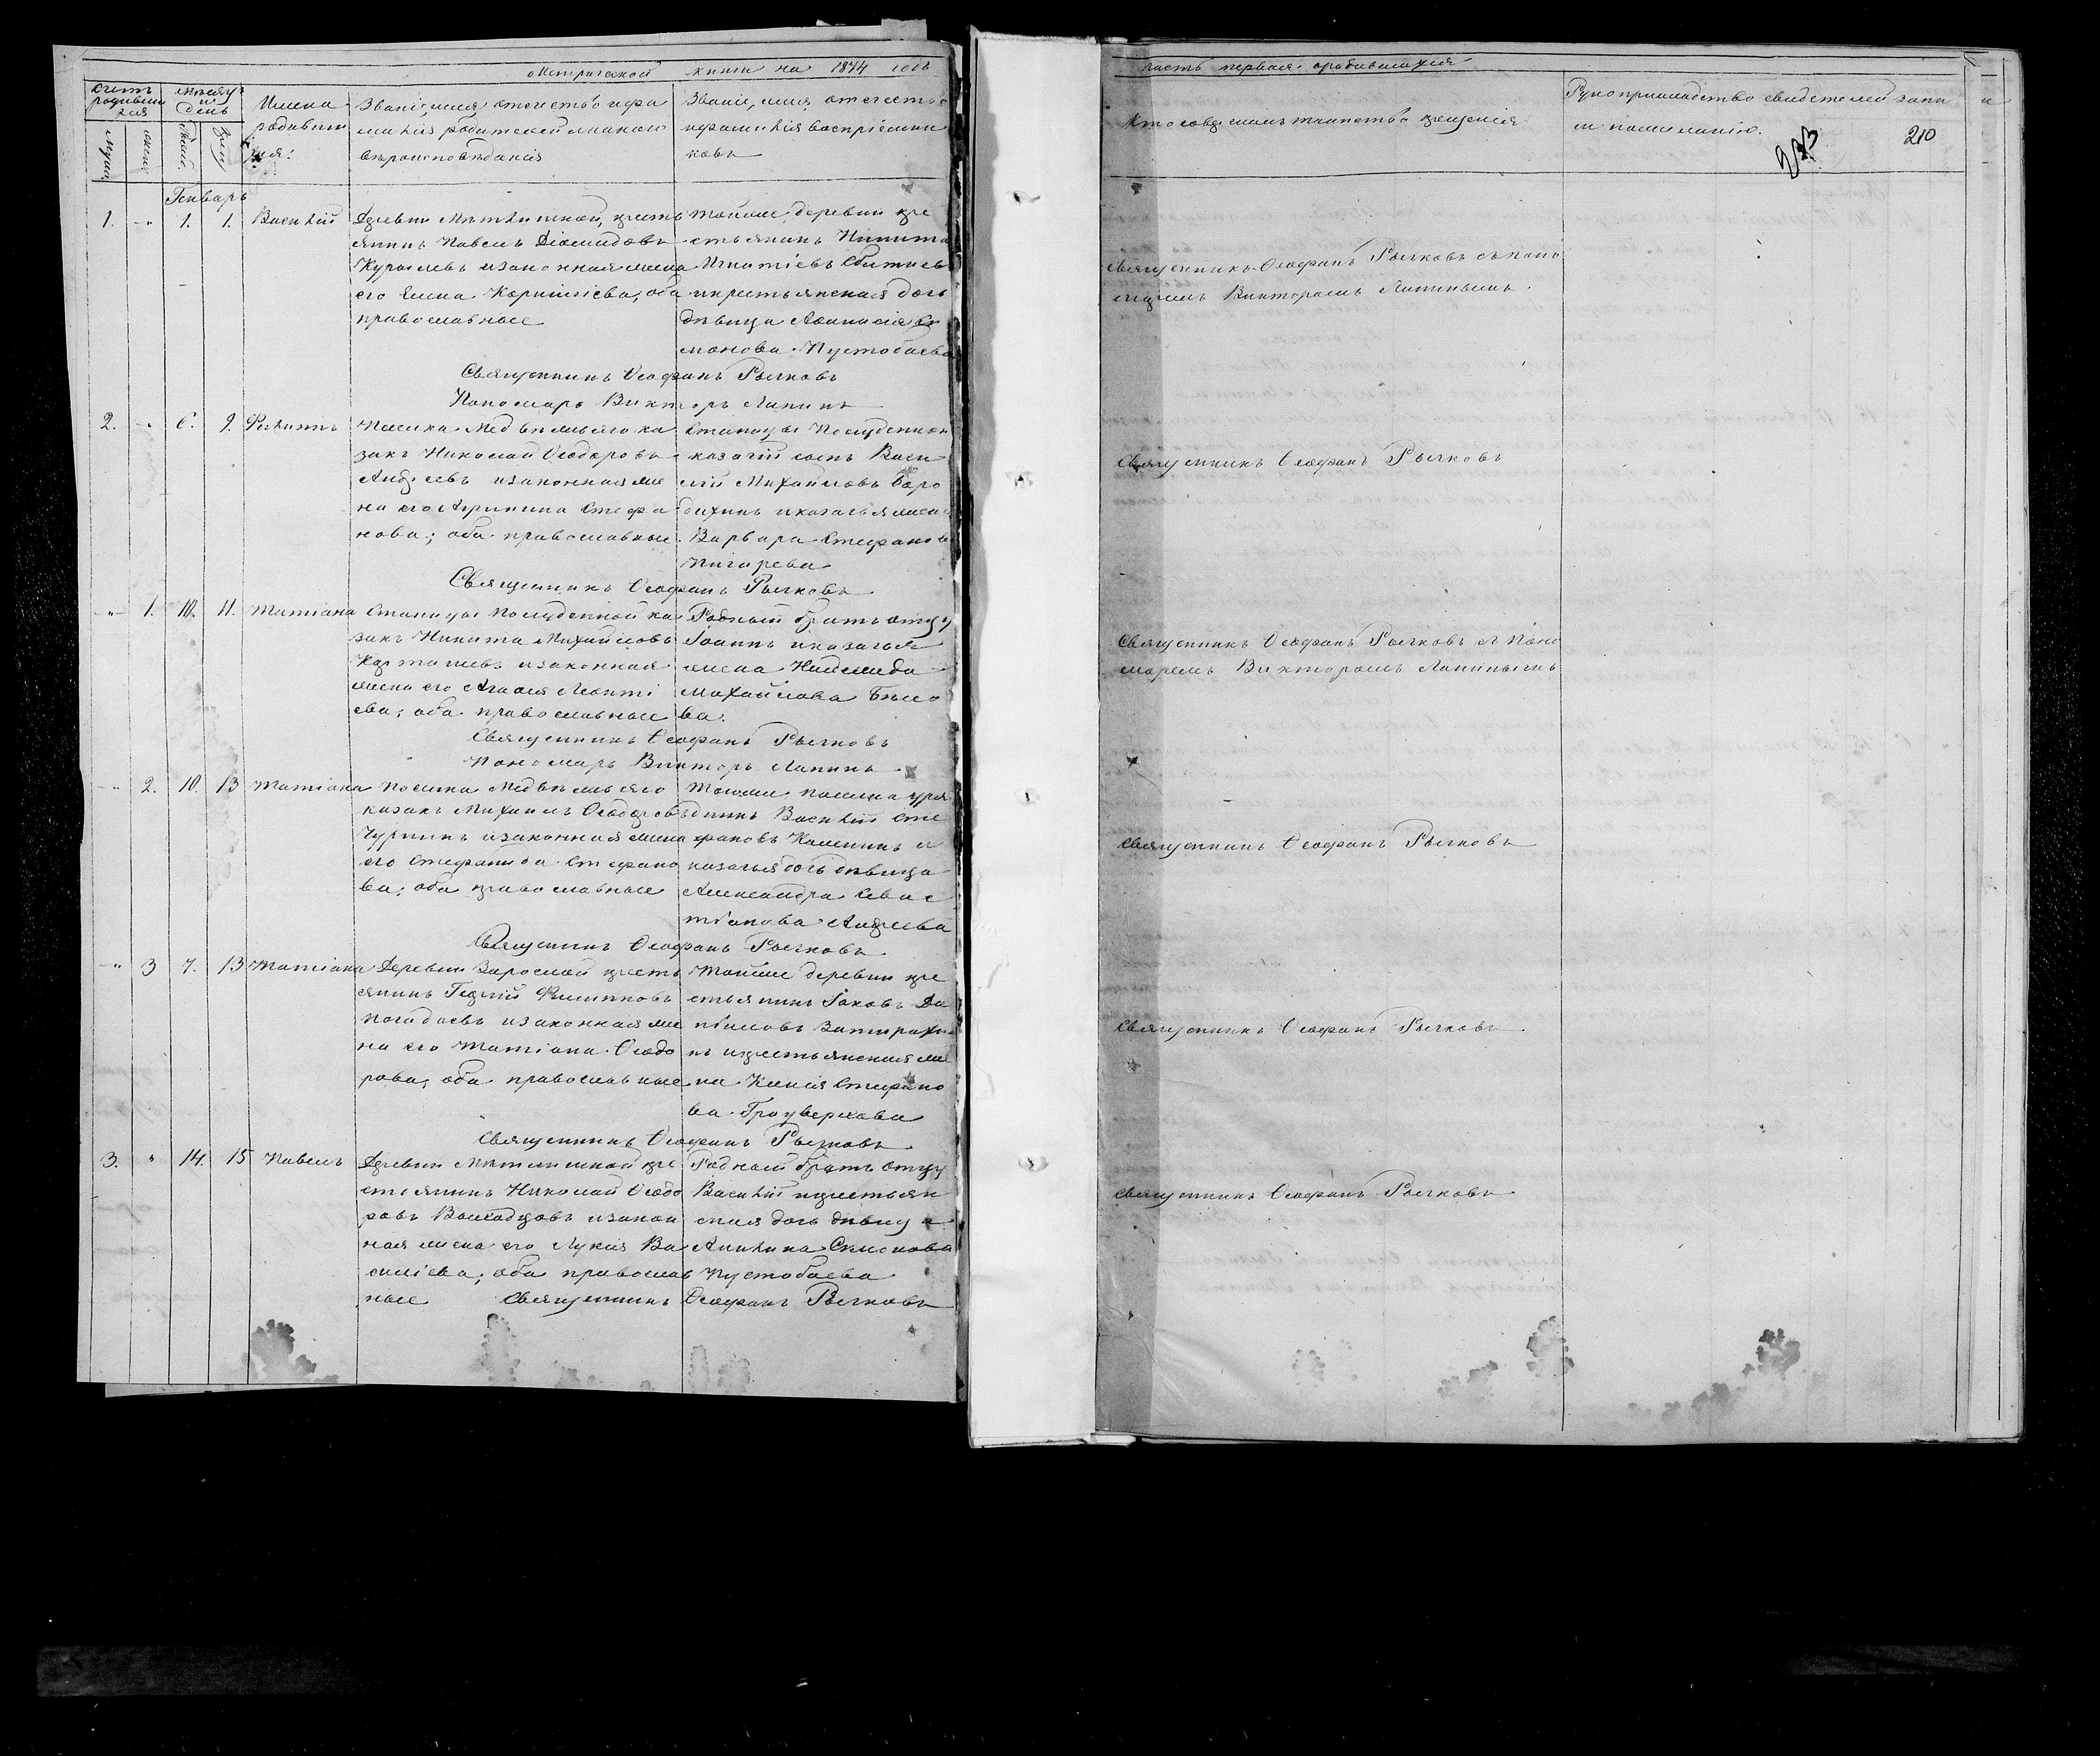 Метрической книги на 1874 годъ
часть первая о родившихся
210
Счетъ родивших
ся
Мѣсяцъ
и
День
Имена
родивши
хся
Званіе, имя отечество и фа
милія родителей и какого
вѣроисповѣданія
Званіе, имя отечество
и фамилія воспріемни
ковъ
Кто совершилъ таинство крещенія
Рукоприкладство свидѣтелей запи
си по желанію.
Генварь
1. 1. 1. Василій
Деревни крестъ
янинъ Павелъ Діомидовъ
и законная жена
его Анна Корниліева, оба
православные
Тойже деревни кре
стьянинъ Никита
Игнатіевъ
и крестьянская дочь
дѣвица Аѳанасія Си
монова Пустобаева
Священникъ Ѳеофанъ Рычковъ съ поно
маремъ Викторомъ Лапинымъ.
Священникъ Ѳеофанъ Рычковъ
Пономарь Викторъ Лапинъ
2. 6. 9. Филиппъ
Поселка ка
закъ Николай Ѳеодоровъ
Андреевъ и законная же
на его Агрипина Стефа
нова; оба православные
Станицы Полуденной
казачій сынъ Васи
лій Михайловъ Боро
дихинъ и казачья жена
Варвара Стефанова
Пичугева
Священникъ Ѳеофанъ Рычковъ
Священникъ Ѳеофанъ Рычковъ
1. 10. 11. Татіана
Станицы Полуденной ка
закъ Никита Михайловъ
и законная
жена его Агафія Леонті
ева; оба православные
Родный братъ отцу
Іоаннъ и казачья
жена
Михайлова Бѣло
ва.
Священникъ Ѳеофанъ Рычковъ и Поно
маремъ Викторомъ Лапинымъ
Священникъ Ѳеофанъ Рычковъ
Пономарь Викторъ Лапинъ
2. 10. 13 Татіана
Поселка
казакъ Михаилъ Ѳеодоровъ
Чуринъ и законная жена
его Стефанида Стефано
ва; оба православные
Тогоже поселка уря
дникъ Василій Сте
фановъ и
казачья дочь дѣвица
Александра Севас
тіанова Андреева
Священникъ Ѳеофанъ Рычковъ
Священникъ Ѳеофанъ Рычковъ
3 7. 13 Татіана
Деревни Зарослой кресть
янинъ Георгій Филипповъ
Погадаевъ и законная же
на его Татіана Ѳеодо
рова; оба православные
Тойже деревни кре
стьянинъ Іаковъ Да
ніиловъ
нъ и крестьянская же
на Ксенія Стефано
ва
Священникъ Ѳеофанъ Рычковъ
Священникъ Ѳеофанъ Рычковъ
3. 14. 15 Павелъ
Деревни кре
стьянинъ Николай Ѳеодо
ровъ и закон
ная жена его Лукія Ва
силіева; оба православ
ные
Родной братъ отцу
Василій и крестьян
ская дочь дѣвица
Симонова
Пустобаева
Священникъ Ѳеофанъ Рычковъ
Священникъ Ѳеофанъ Рычковъ